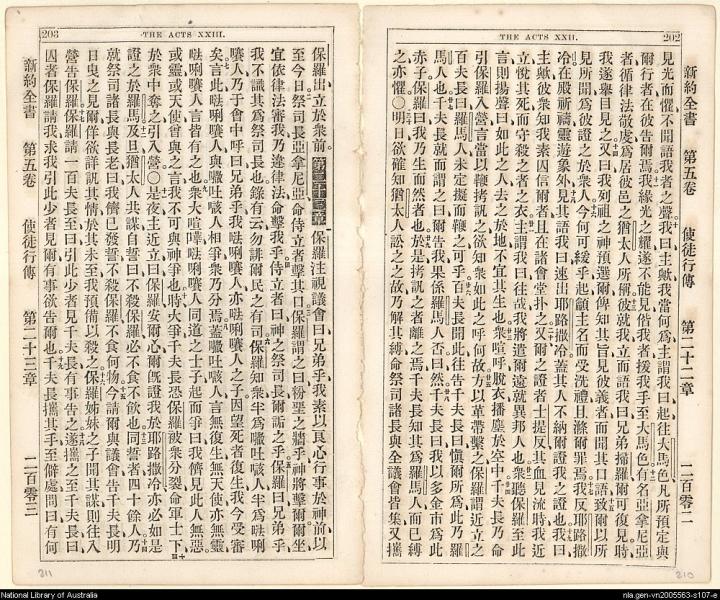 THE ACTS XXII. 202
新約全書 第五卷 使徒行傳 第二十二章 二百零二
見光而懼不聞語我者之聲我曰主歟我當何爲主謂我曰起往大馬色凡所預定與
爾行者在彼告爾焉我緣光之耀遂不能見偕我者援我手至大馬色有名亞拿尼亞
者循律法敬虔爲居彼邑之猶太人所稱彼就我立而語我曰兄弟掃羅爾可復見時
我遂舉目見之又曰我列祖之神預選爾俾知其旨見彼義者而聞其口語致爾以所
見所聞爲彼證之於衆人今何可緩乎起籲主名而受洗禮且滌爾罪焉我反耶路撒
冷在殿祈禱靈遊象外見其語我曰速出耶路撒冷蓋其人不納爾證我之證也我曰
主歟彼衆知我素囚信爾者且在諸會堂扑之又爾之證者士提反其血見流時我近
立悅其死而守殺之者之衣主謂我曰往哉我將遣爾遠就異邦人也衆聽保羅至此
言則揚聲曰如此之人去之於地不宜其生也衆喧呼脫衣播塵於空中千夫長乃命
引保羅入營言當以鞭拷訊之欲知衆如此之呼何故方以革帶擊之保羅謂近立之
百夫長曰羅馬人未定擬而鞭之可乎百夫長聞此往告千夫長曰愼爾所爲此乃羅
馬人也千夫長就而謂之曰爾告我果係羅馬人否曰然千夫長曰我以多金市爲此
赤子保羅曰我乃生而然者也於是拷訊之者離之焉千夫長知其爲羅馬人而已縛
之亦懼○明日欲確知猶太人訟之之故乃解其縛命祭司諸長與全議會皆集又攜
210
203 THE ACTS XXIII.
保羅出立於衆前第二十三章保羅注視議會曰兄弟乎我素以良心行事於神前以
至今日祭司長亞拿尼亞命侍立者擊其口保羅謂之曰粉堊之牆乎神將擊爾爾坐
宜依律法審我乃違律法命擊我乎侍立者曰神之祭司長爾詬之乎保羅曰兄弟乎
我不識其爲祭司長也錄有云勿誹爾民之有司保羅知衆半爲吐咳人半爲唎
嚷人乃于會中呼曰兄弟乎我唎嚷人亦唎嚷人之子因望死者復生我今受審
矣言此唎嚷人與吐咳人相爭衆乃分焉蓋吐咳人言無復生無天使亦無靈
唎嚷人言皆有之也衆大喧嘩唎嚷人同道之士子起而爭曰我儕見此人無惡
或靈或天使曾與之言我不可與神爭也時大爭千夫長恐保羅被衆分裂命軍士下
於衆中奪之引入營○是夜主近立曰保羅安爾心爾旣證我於耶路撒冷亦必如是
證之於羅馬及旦猶太人共謀自誓曰不殺保羅必不食不飲也同誓者四十餘人乃
就祭司諸長與長老曰我儕已發誓不殺保羅不食何物今請爾與議會告千夫長明
日曳之見爾佯欲詳訊其情於其未至我預備以殺之保羅姊妹之子聞其謀則往入
營告保羅保羅請一百夫長至曰引此少者見千夫長有事告之遂攜之至千夫長曰
囚者保羅請我求我引此少者見爾有事欲告爾也千夫長攜其手至僻處問曰有何
新約全書 第五卷 使徒行傳 第二十三章 二百零三
211
National Library of Australia
nla.gen-vn2005563-s107-e